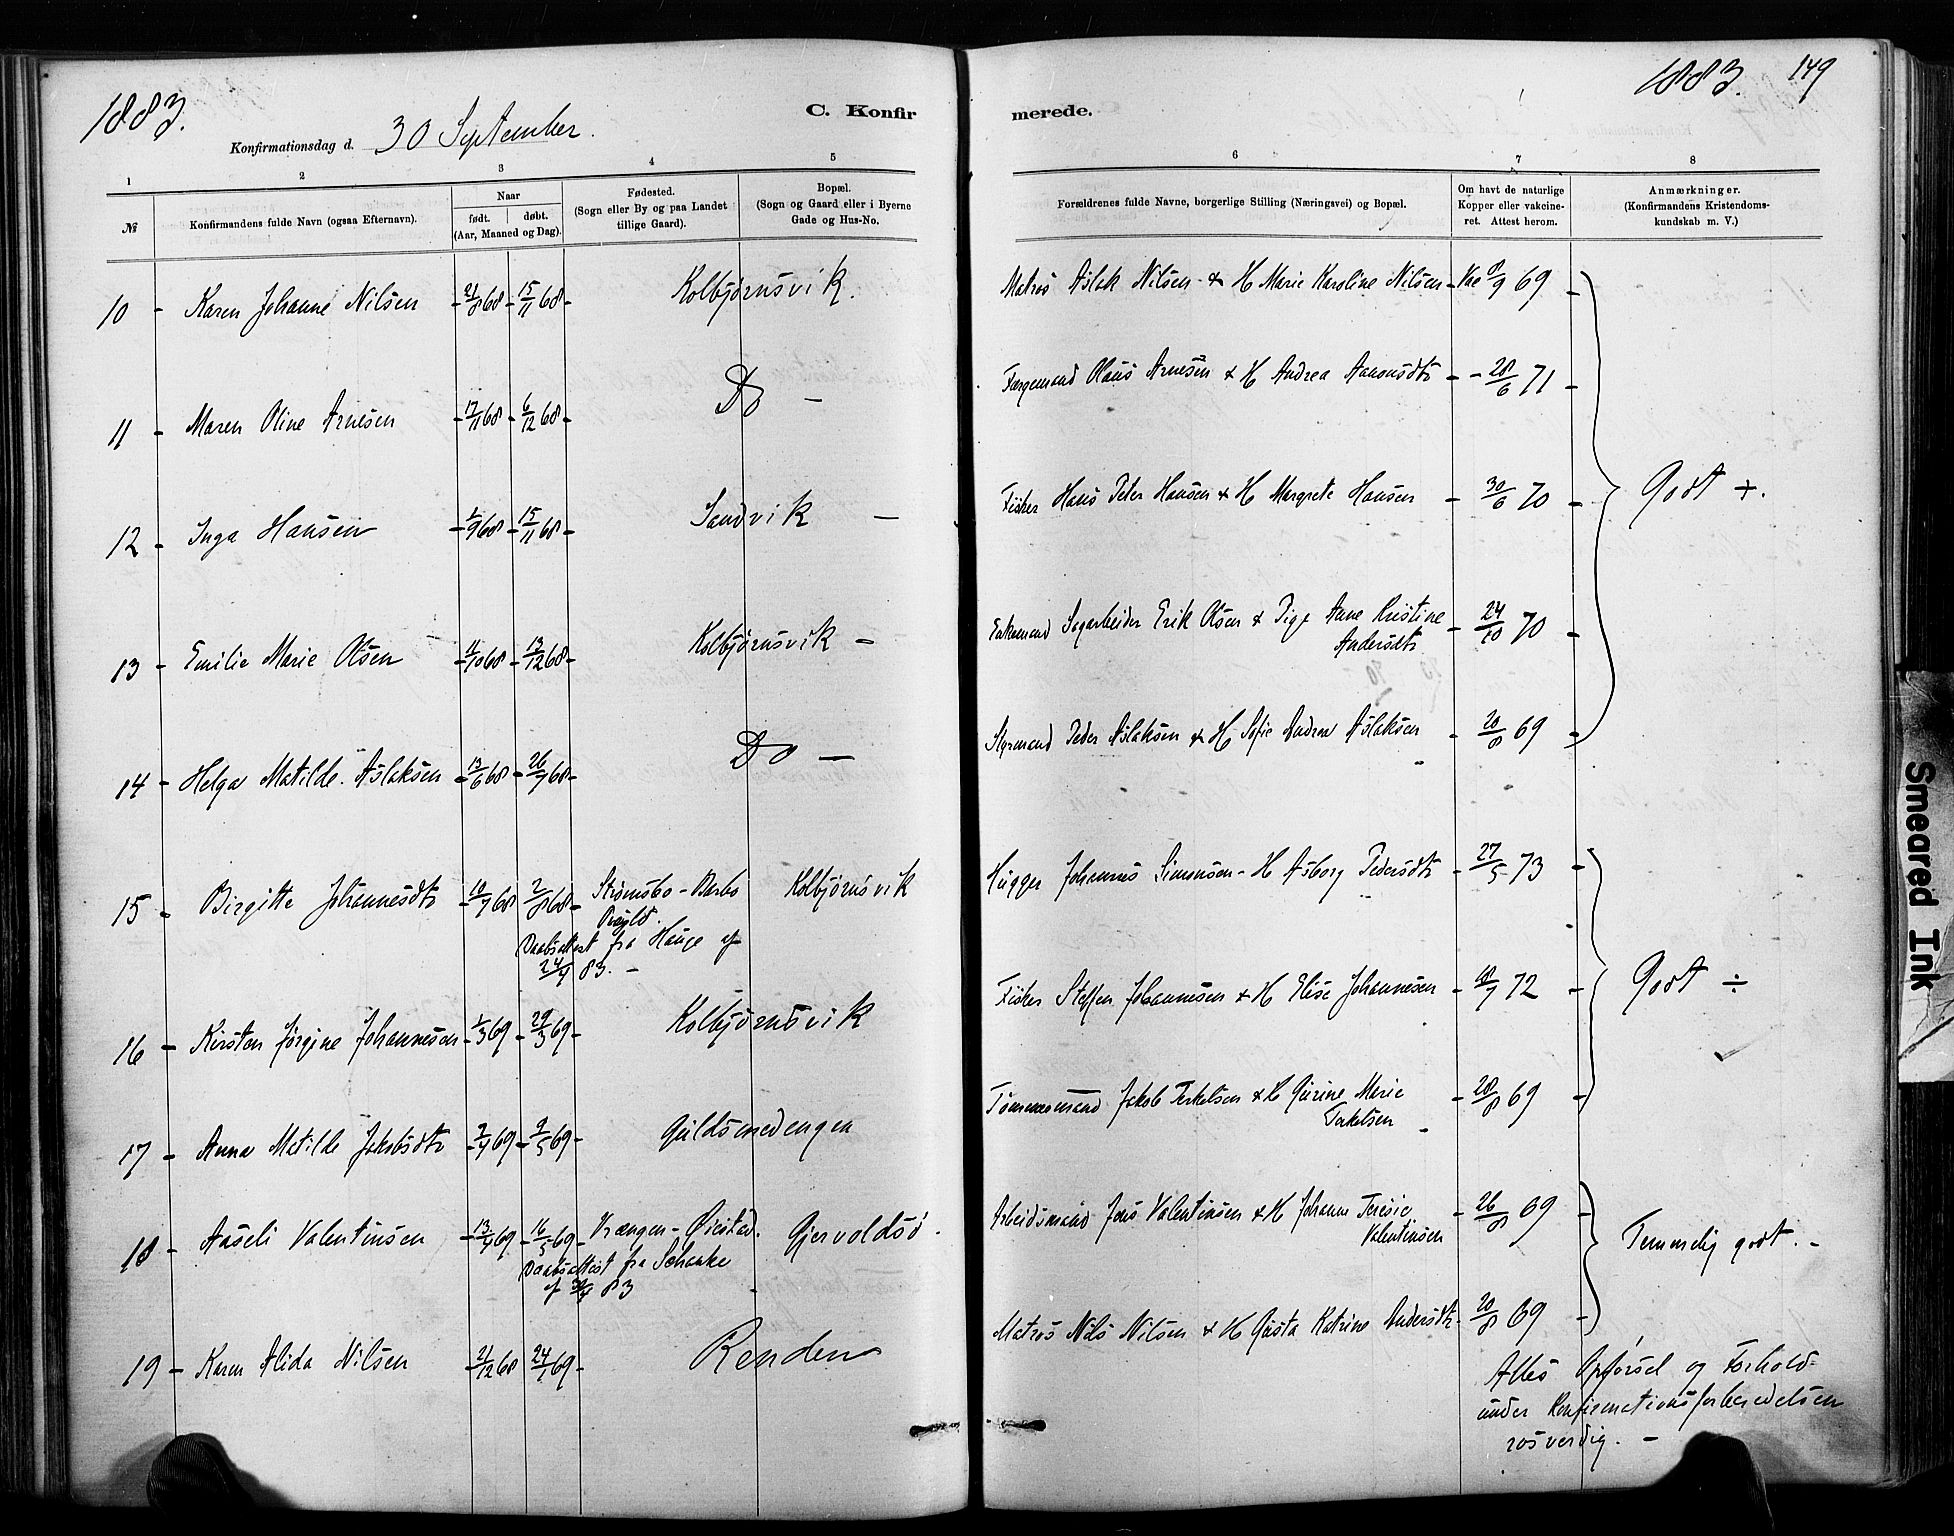 1883.
1883. 149
C. Konfirmerede.
Konfirmationsdag d. 30 September.
1 2 3 4 5 6 7 8
№
Konfirmandens fulde Navn (ogsaa Efternavn).
Naar
født. døbt.
(Aar, Maaned og Dag).
Fødested.
(Sogn eller By og paa Landet
tillige Gaard).
Bopæl.
(Sogn og Gaard eller i Byerne
Gade og Hus-No.
Forældrenes fulde Navne, borgerlige Stilling (Næringsvei) og Bopæl.
Om havt de naturlige
Kopper eller vakcine-
ret. Attest herom.
Anmærkninger.
(Konfirmandens Kristendoms-
kundskab m. V.)
10 - Karen Johanne Nilsen - 21/8 68 - 15/11 68 - Kolbjørnsvik. Matros Aslak Nilsen & H Marie Karoline Nilsen - Vac 8/9 69 -
11 - Maren Oline Arnesen - 17/11 68 - 6/12 68 - Do - Færgemand Olaus Arnesen & H Andrea Aanonsdtr - - 28/6 71 -
12 - Inga Hansen - 1/9 68 - 15/11 68 - Sandvik - Fisker Hans Peter Hansen & H Margrete Hansen - 30/6 70 -
Godt +.
13 - Emilie Marie Olsen - 11/10 68 - 13/12 68 - Kolbjørnsvik - Enkemand Sagarbeider Erik Olsen & Pige Anne Kristine
Andersdtr - 24/10 70 -
14 - Helga Matilde Aslaksen - 13/6 68 - 26/7 68 - Do - Styrmand Peder Aslaksen & H Sofie Andrea Aslaksen - 20/8 69 -
15 - Birgitte Johannesdtr - 10/7 68 - 2/8 68 - Strømsbo - Barbo Kolbjørnsvik Hugger Johannes Simonsen - H Asborg Pedersdtr - 27/5 73 -
Daabsattest fra Hauge af
24/4 83. -
16 - Kirsten Jørgine Johannesen - 1/3 69 - 29/3 69 - Kolbjørnsvik Fisker Steffen Johannesen & H Elise Johannesen - 18/7 72 -
Godt ÷
17 - Anna Matilde Jakobsdtr - 2/4 69 - 9/5 69 - Guldsmedengen Tømmermand Jakob Terkelsen & H Gurine Marie
Terkelsen - 28/8 69 -
18 - Aaseli Valentinsen - 13/4 69 - 16/5 69 - Vrængen - Øiestad. Gjervoldsø. Arbeidsmand Jens Valentinsen & H Johanne Teresie
Valentinsen - 26/8 69 -
Daabsattest fra Schanke
af 83
Temmelig godt. -
19 - Karen Alida Nilsen - 21/12 68 - 24/1 69 - Renden Matros Nils Nilsen & H Gusta Katrine Andersdtr. - 20/8 69 -
Alles Opførsel og Forhold
under Konfirmationsforberedelsen
rosverdig. -
Smeared Ink